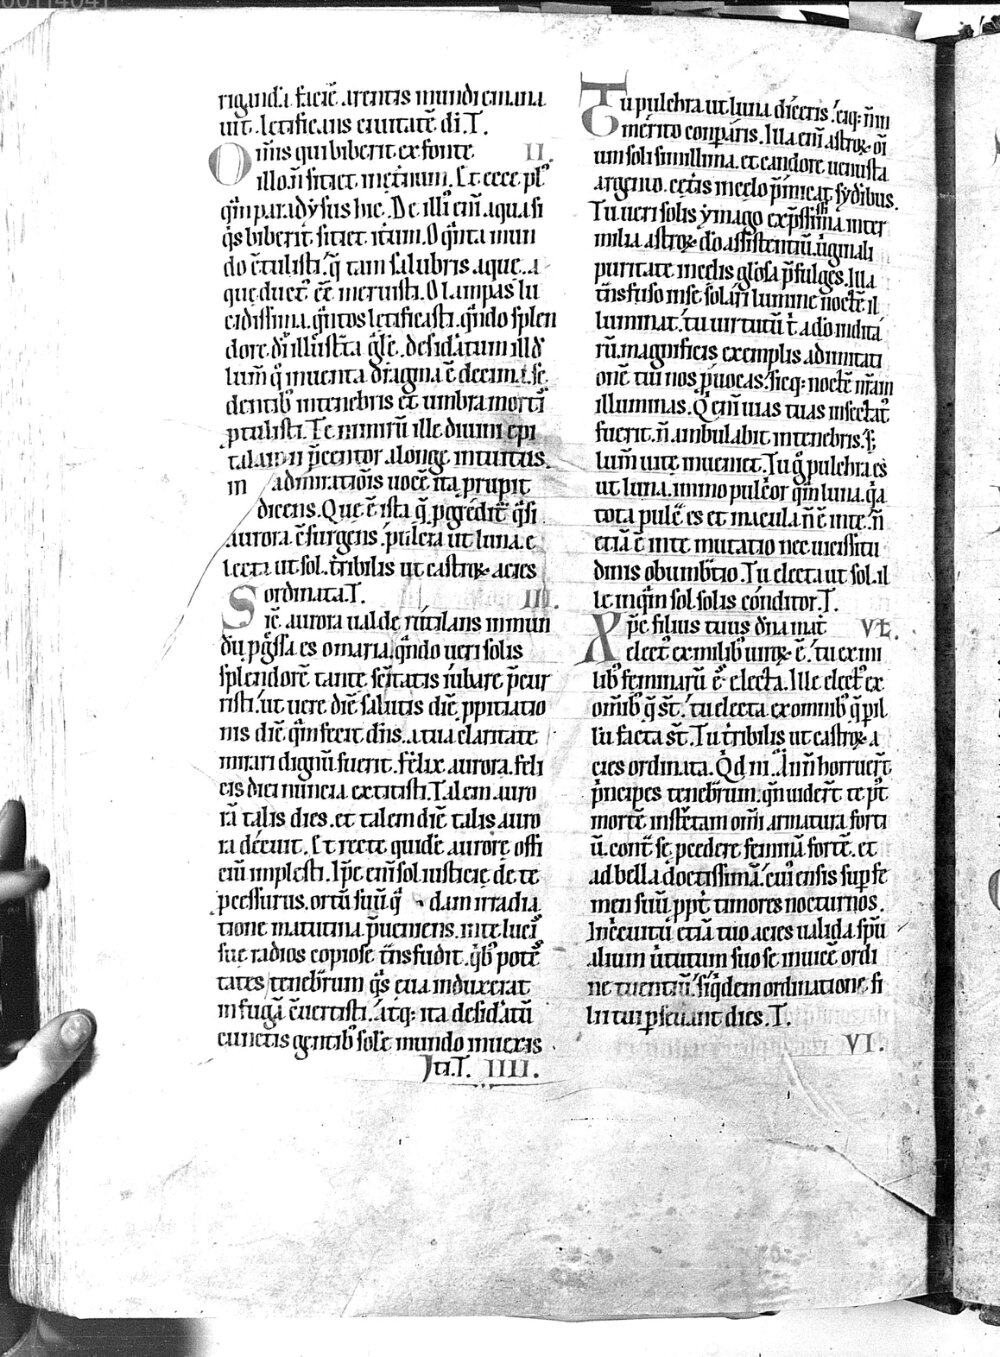 rigandā faciē arentis mundi emana
uit. letificans ciuitatē dī. T.
Omīs qui biberit ex fonte II.
illo. n̄ sitiet in et̄num. Et ecce pl'
q̄m paradysus hic. De illi' eni aqua si
q̄s biberit, sitiet itum. O q̄nta mun
do c̄tulisti. q̄ tam salubris aque. a
que duct' eē meruisti. O lampas lu
cidissima. q̄ntos letificasti. q̄ndo splen
dore. di illust̄ta gl̄e. desidatum ill d'
lum̄ q̄ inuenta dragma ē decima. se
dentib' in tenebris et umbra morti
ptulisti. Te nimirū ille diuini epi
talamii p̄centor a longe intuitus.
in admirationis uocē ita prupit
dicens. Que ē ista q̄ pgredit' q̄si
aurora c̄surgens. pulcra ut luna. e
lecta ut sol. tribilis ut castrox acies
ordinata. T. III.
Sic aurora ualde rutilans in mun
dū pgssa es o maria. q̄ndo ueri solis
splendorē tante sētitatis iubare p̄cur
risti. ut uere diē salutis diē ppitiatio
nis diē q̄m fecit dn̄s. a tua claritate
initiari dignū fuerit. Felix aurora. feli
cis diei nuncia extitisti. Talem auro
rā talis dies. et talem diē talis auro
ra decuit. Et recte quidē aurore offi
ciū implesti. Ipe eni sol iusticie de te
pcessurus. ortū suū q̄dam irradia
tione matutina p̄ueniens. in te luci'
sue radios copiose t̄nsfudit. q̄b' potē
tates tenebrum q̄s eua induxerat
in fugā c̄uertisti. atq: ita desidatū
cunctis gentib' solē mundo inuexis
ti. T. IIII.
Tu pulchra ut luna diceris. eiq: n̄ in
merito conparis. Illa eni astrox oī
um soli simillima. et candore uenusta
argenteo. cetis in celo p̄mieat sydibus.
Tu ueri solis ymago exp̄ssissima inter
milia astrox do assistentiū. uginali
puritate in celis glosa p̄fulges. Illa
t̄nsfuso in se solari lumine nocte il
luminat. tu uirtutū t a do indita
rū. magnificis exemplis ad imitati
onē tui nos puocas. sicq: nocte nr̄am
illuminas. Q eni uias tuas insectat'
fuerit. n̄ ambulabit in tenebris. s;
lum uite inueniet. Tu g pulchra es
ut luna. immo pulcor q̄m luna. q̄a
tota pulc̄ es et macula n̄ ē in te. n̄
etiā ē in te mutatio nec uicissitu
dinis obumbtio. Tu electa ut sol. il
le inq̄m sol solis conditor. T.
Xp̄c filius tuus dn̄a mat' VI.
elect' ex milib' uirox ē. tu ex mi
lib' feminarū ē' electa. Ille elect' ex
omib' q̄ st̄. tu electa ex omnib' q̄ p il
lū facta st̄. Tu tribilis ut castrox a
cies ordinata. Qd ni. Nam horruert
p̄ncipes tenebrum. q̄n uidert te p̄t
morte instētam omi armatura forti
ū. cont̄ se pcedere feminū forte. et
ad bella doctissimā. cui' ensis sup fe
men suū. ppt' timores nocturnos.
In circuitu etiā tuo acies ualida spū
alium uirtutum suo se inuicē ordi
ne tuentiū. siq̄dem ordinatione. fi
lii tui pseuant dies. T.
VI.